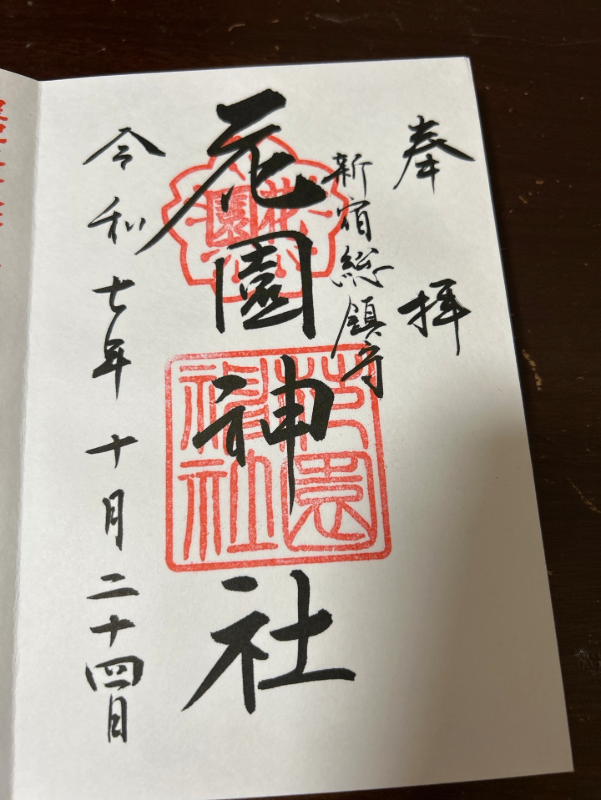 奉拝
新宿総鎮守
花園神社
花園
花園神社
令和七年十月二十四日